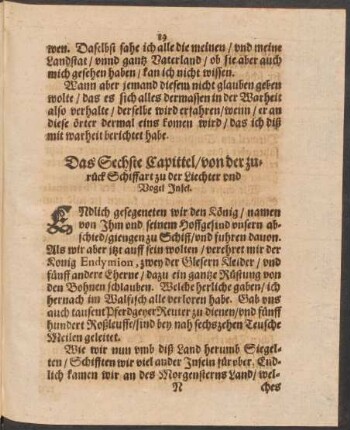 19
wen. Daselbst sahe ich alle die meinen / vnd meine
Landstat / vnnd gantz Vaterland / ob sie aber auch
mich gesehen haben / kan ich nicht wissen.
Wann aber jemand diesem nicht glauben geben
wolte / das es sich alles dermassen in der Warheit
also verhalte / derselbe wird erfahren / wenn / er an
diese örter dermal eins komen wird / das ich diß
mit warheit berichtet habe.
Das Sechste Capittel / von der zu-
rück Schiffart zu der Liechter vnd
Vogel Insel.
ENdlich gesegeneten wir den König / namen
von Ihm vnd seinem Hoffgesind vnsern ab-
schied / giengen zu Schiff / vnd fuhren dauon.
Als wir aber itzt auff sein wolten / verehret mir der
Konig Endymion, zwey der Glesern Kleider / vnd
fünff andere Eherne / dazu ein gantze Rüstung von
den Bohnen schlauben. Welche herliche gaben / ich
hernach im Walfisch alle verloren habe. Gab vns
auch tausent Pferdgeyer Reuter zu dienen / vnd fünff
hundert Roßleuffe / sind bey nah sechszehen Teusche
Meilen geleitet.
Wie wir nun vmb diß Land herumb Siegel-
ten / Schifften wir viel ander Inseln für vber, End-
lich kamen wir an des Morgensterns Land / wel-
N ches